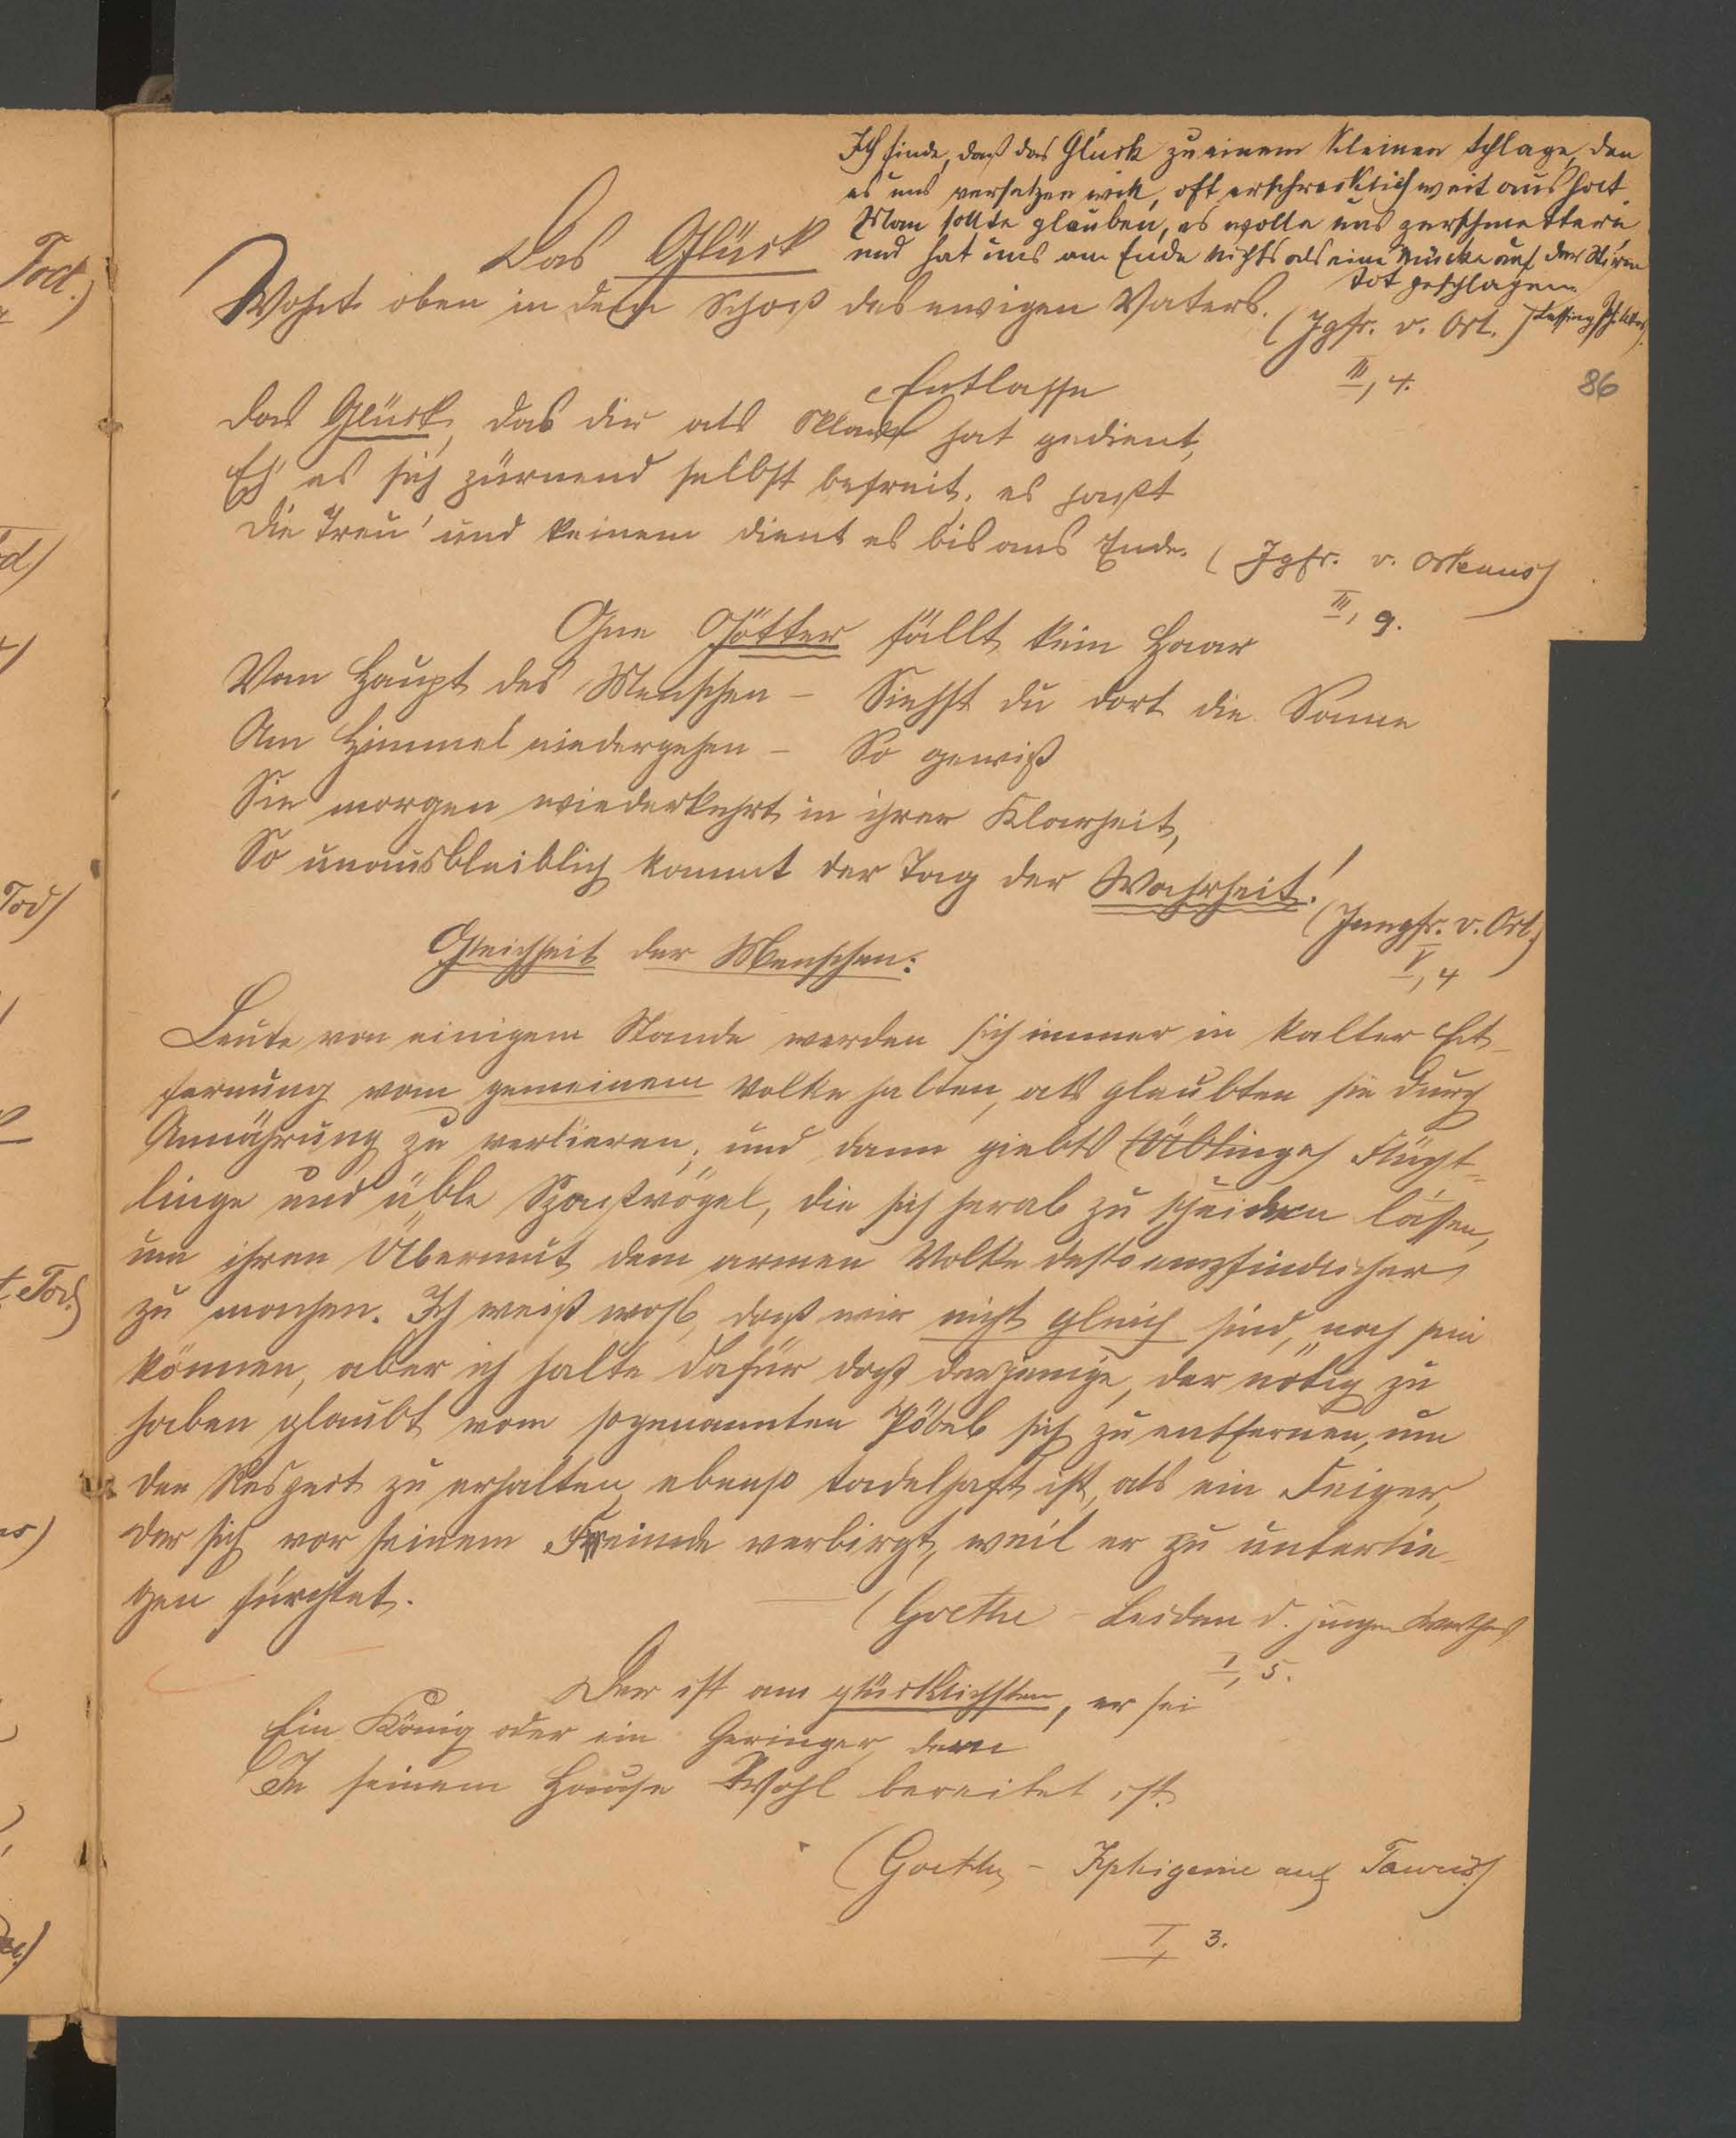 Ich finde, daß das Glück zu einem kleinen Schlage, den
es uns versetzen will, oft erschrecklich weit aus holt.
Man sollte glauben, es wolle uns zerschmettern,
und hat uns am Ende nichts als eine Mücke auf der Stirne
tot geschlagen.
(Lessing
Das Glück
Wohnt oben in dem Schoß des ewigen Vaters.
(Jgfr. v. Orl.)
III, 4.
86
Entlasse
Das Glück, das dir als Sklave hat gedient,
Eh' es sich zürnend selbst befreit, es haßt
Die Treu' und keinem dient es bis ans Ende. (Jgfr. v. Orleans)
III, 9.
Ohne Götter fällt kein Haar
Vom Haupt des Menschen – Siehst du dort die Sonne
Am Himmel niedergehen – So gewiß
Sie morgen wiederkehrt in ihrer Klarheit,
So unausbleiblich kommt der Tag der Wahrheit!
(Jungfr. v. Orl.)
V, 4
Gleichheit der Menschen:
Leute von einigem Stande werden sich immer in kalter Ent-
fernung vom gemeinem Volke halten, als glaubten sie durch
Annährung zu verlieren; und dann giebts (Üblinge) Flücht-
linge und üble Spaßvögel, die sich herab zu scheiden lassen,
um ihren Übermut dem armen Volke desto empfindlicher
zu machen. Ich weiß wohl, daß wir nicht gleich sind, noch sein
können, aber ich halte dafür daß derjenige, der nötig zu
haben glaubt vom sogenannten Pöbel sich zu entfernen, um
den Respect zu erhalten, ebenso tadelhaft ist, als ein Feiger,
der sich vor seinem Feinde verbirgt, weil er zu unterlie-
gen fürchtet.
(Goethe – Leiden d. jungen Werthers)
I, 5.
Der ist am glücklichsten, er sei
Ein König oder ein Geringer, dem
In seinem Hause Wohl bereitet ist.
(Goethe – Iphigenie auf Tauris)
I, 3.